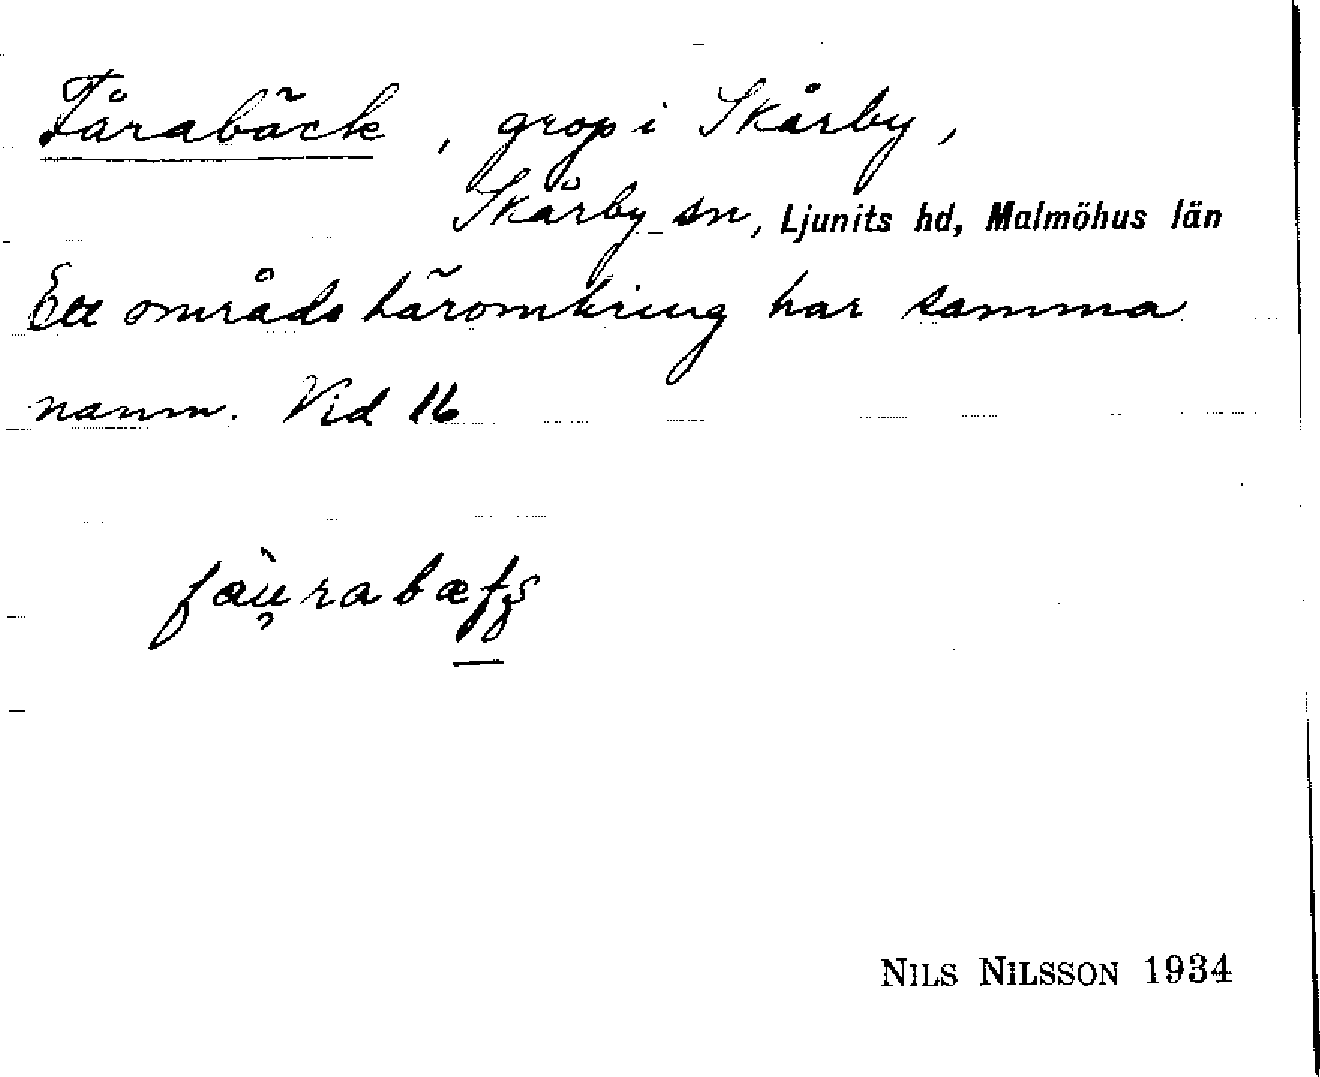 Fårabäck, grop i Skårby,
Skårby sn, Ljunits hd, Malmöhus län
Ett område häromkring har samma
namn. Vid 16
NILS NILSSON 1934